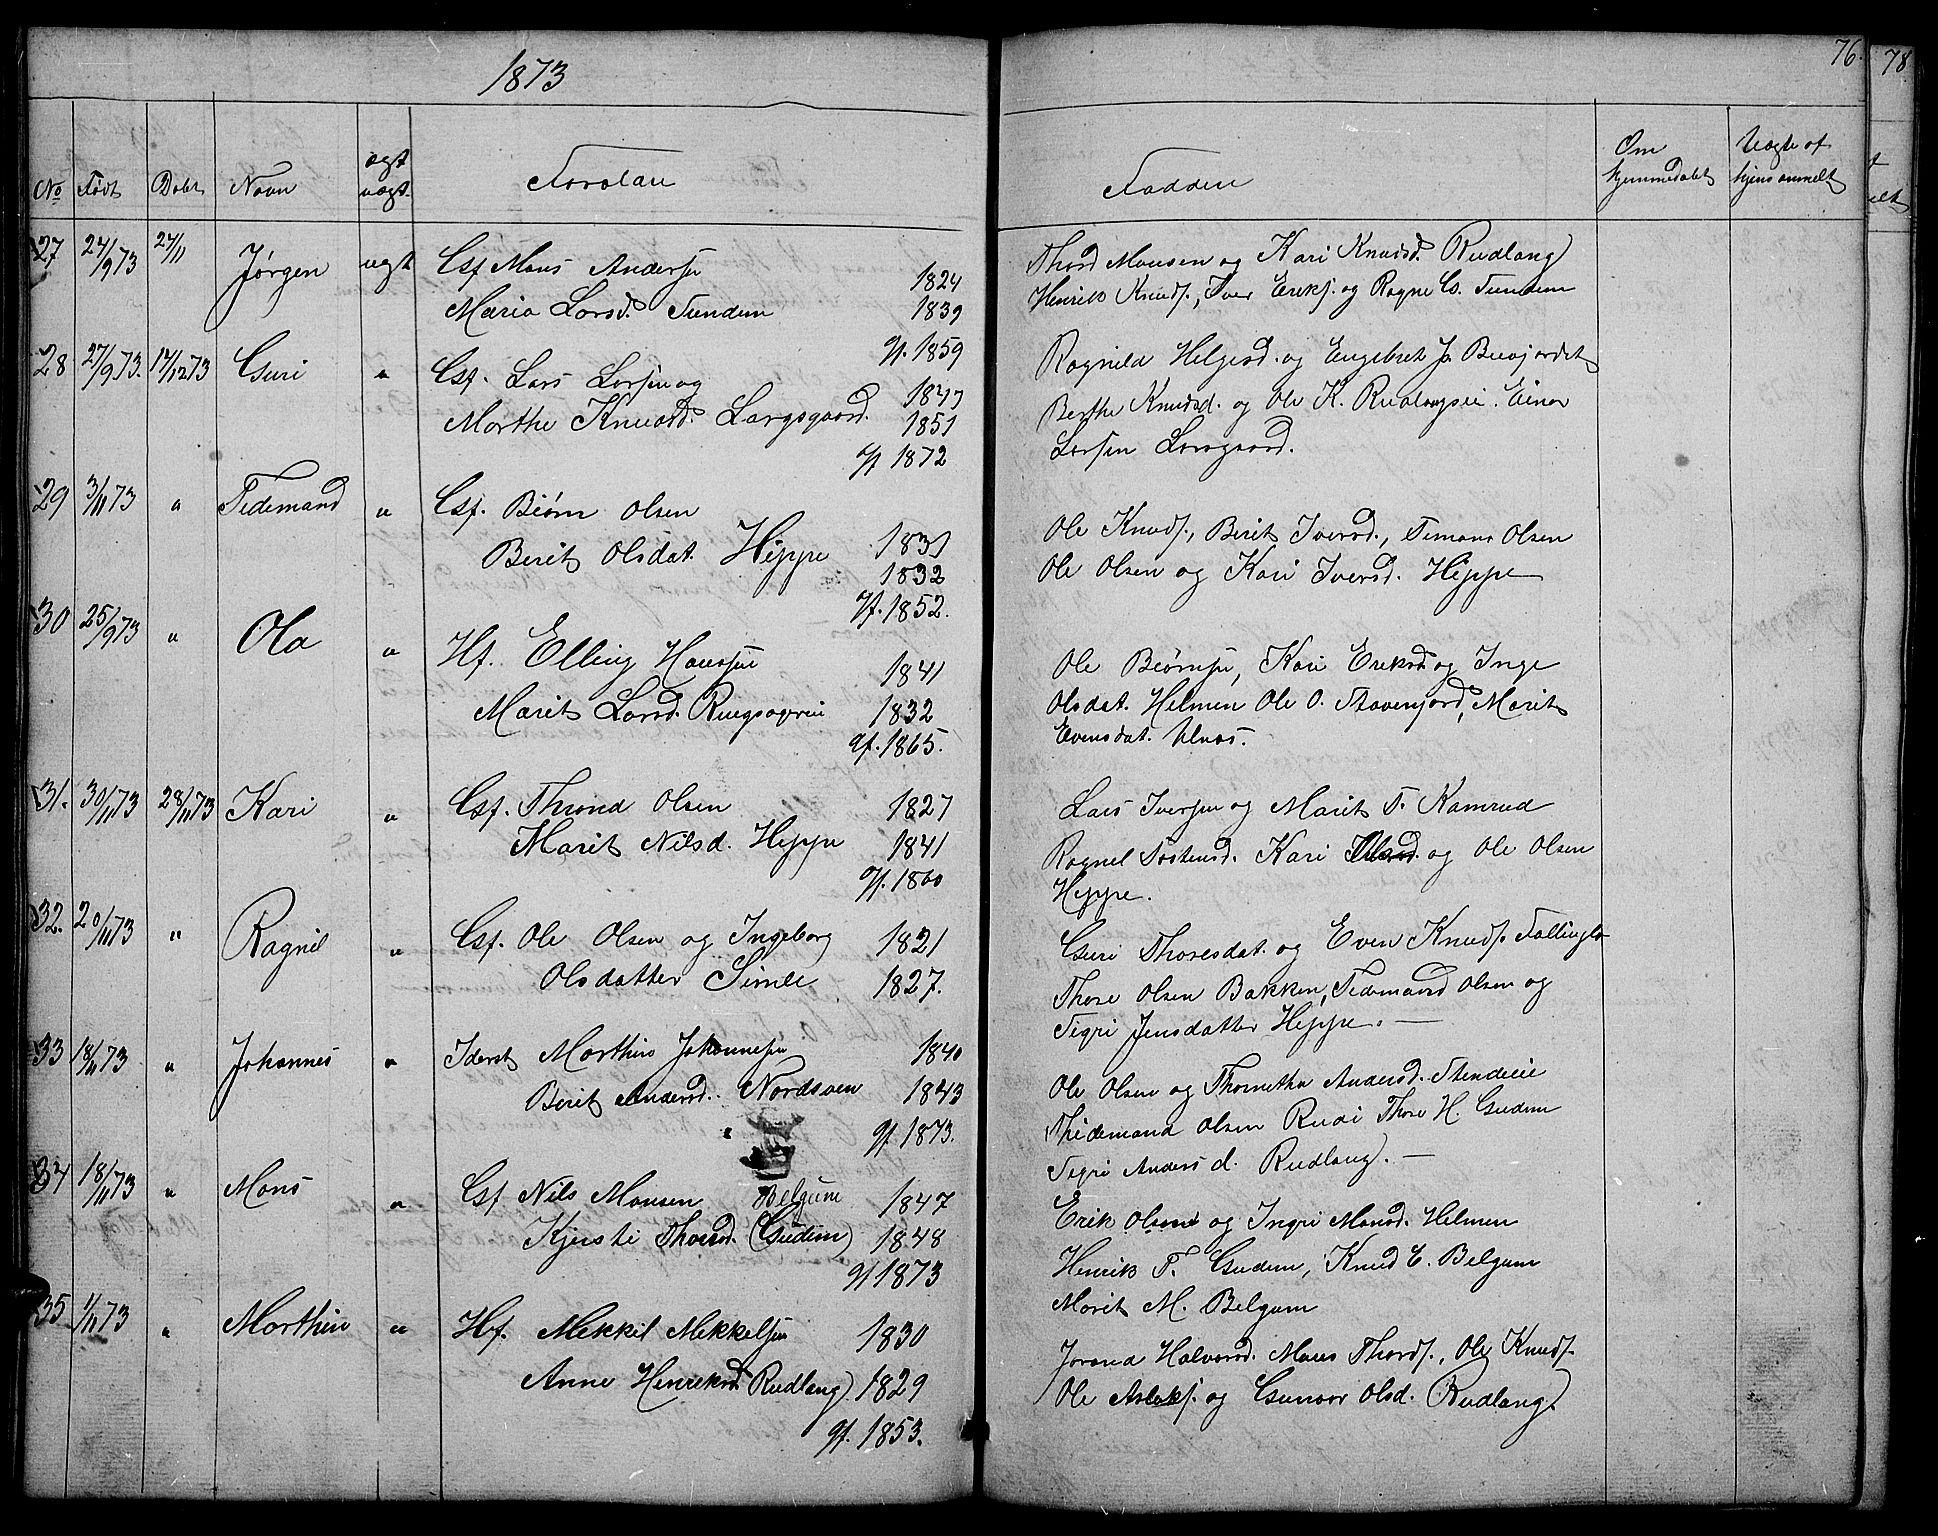 1873
76.
78
No Født Døbt Navn ægt uægt. Foreldre
Faddere
Om hjemmedøbt
Uægte af hjem anmelt
27 24/9 73 24/11 Jørgen ægt Gsf Mons Andersen 1824
Maria Larsd. Sundem 1839
gf. 1859
Thord Monsen og Kari Knudsd. Rudlang
Henrik Knuds., Iver Eriks. og Ragne G. Sundem
28 27/9 73. 14/12 73 Guri " Gsf. Lars Larsen og 1847
Marthe Knudsd. Largsgaard. 1851
gf 1872
Ragnild Helgesd. og Engebret J. Buajordet
Berthe Knudsd. og Ole K. Rudlangsei. Einar
Larsen Larsgaard.
29 3/11 73 " Tidemand " Gsf. Biørn Olsen
Berit Olsdat. Hippe 1831
1832
gf. 1852.
Ole Knuds., Berit Iversd., Timans Olsen
Ole Olsen og Kari Iversd. Hippe
30 25/9 73 " Ola " Hf. Elling Hansen 1841
Marit Larsd. Ringsagreie 1832
gf. 1865.
Ole Biørnsen, Kari Eriksd og Inge
Olsdat. Helmen Ole O. Stavenjord, Marit
Evensdat. Ulnæs.
31. 30/11 73 28/11 73 Kari " Gsf. Thrond Olsen 1827
Marit Nilsd. Hippe 1841
gf. 1860
Lars Iversen og Marit T. Kamrud
Ragnil Tostensd. Kari Olsd. og Ole Olsen
Hippe.
32. 20/11 73 " Ragnil " Gsf. Ole Olsen og Ingeborg 1821
Olsdatter Simle 1827.
Guri Thoresdat. og Even Knuds. Fallinglo
Thore Olsen Bakken, Tidemand Olsen og
Sigri Jensdatter Hippe. —
33 18/11 73 " Johannes " Iderst Morthin Johannesen 1840
Berit Andersd. Nordsven 1843
gf. 1873.
Ole Olsen og Thornetha Andersd. Stendeie
Thidemand Olsen Rudi Thore H. Gudem
Sigri Anders d. Rudlang. —
34 18/11 73 " Mons " Gsf Nils Monsen Belgum 1847
Kjersti Thorsd. (Gudem) 1848
gf 1873
Erik Olsen og Ingri Monsd. Helmen
Henrik T. Gudem, Knud E. Belgum
Marit M. Belgum
35 1/11 73 " Morthin " Hf. Mekkil Mekkelsen 1830
Anne Henriksd Rudlang) 1829
gf. 1853.
Jorand Halvorsd. Mons Thords., Ole Knuds.
Ole Aslaks. og Gunvor Olsd. (Rudlang)